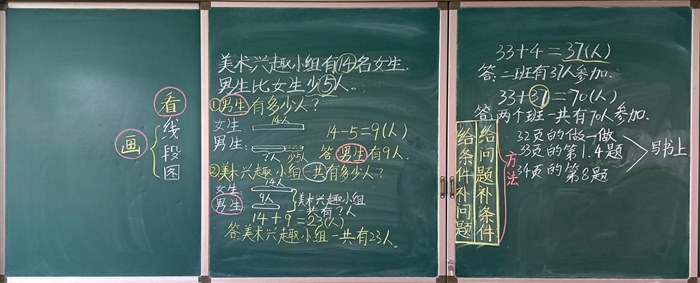 看
画
线段图
美术兴趣小组有14名女生.
男生比女生少5人.
①男生有多少人？
14人
女生:
男生:
?人
14-5=9(人)
答:男生有9人.
②美术兴趣小组一共有多少人？
14人
女生:
男生:
9人
美术兴趣小组
共有?人
14+9=23(人)
答:美术兴趣小组一共有23人.
33+4=37(人)
答:二班有37人参加.
33+37=70(人)
答:两个班一共有70人参加.
给条件补问题
给问题补条件
方法
32页的做一做
33页的第1.4题
34页的第8题
写书上